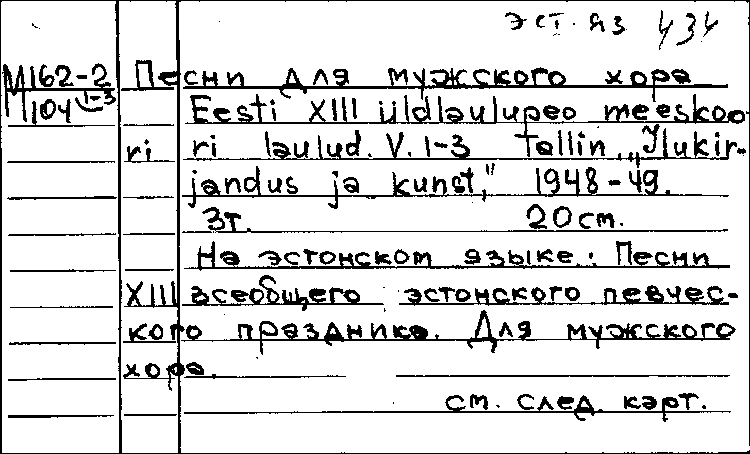 эст. яз 434
М162-2 Песни для мужского хора
М104 1-3 Eesti XIII üldlaulupeo meeskoo
ri ri laulud. V. 1-3 Tallin, „Ilukir-
jandus ja kunst," 1948-49.
3т. 20 cm.
На эстонском языке: Песни
XIII всеобщего эстонского певчес-
кого праздника. Для мужского
хора.
см. след. карт.